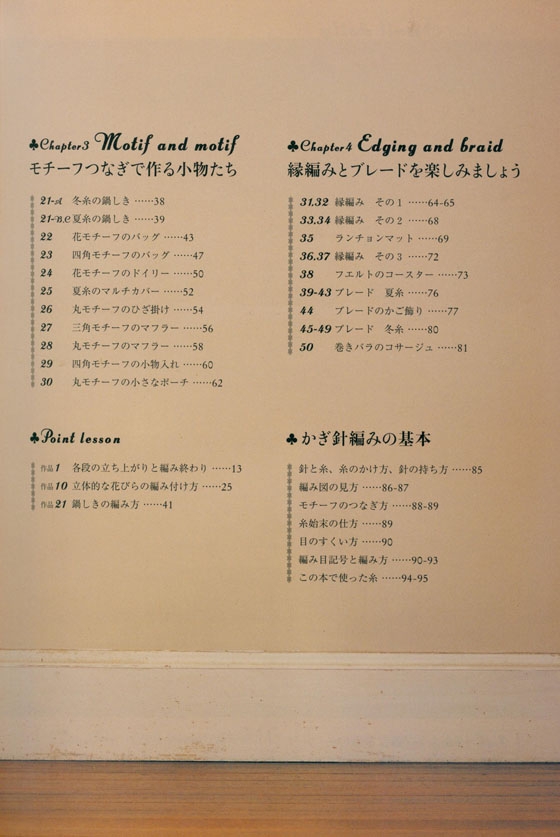 ♣Chapter3 Motif and motif
モチーフつなぎで作る小物たち
21-A 冬糸の鍋しき ……38
21-B.C 夏糸の鍋しき ……39
22 花モチーフのバッグ ……43
23 四角モチーフのバッグ ……47
24 花モチーフのドイリー ……50
25 夏糸のマルチカバー ……52
26 丸モチーフのひざ掛け ……54
27 三角モチーフのマフラー ……56
28 丸モチーフのマフラー ……58
29 四角モチーフの小物入れ ……60
30 丸モチーフの小さなポーチ ……62
♣Point lesson
作品1 各段の立ち上がりと編み終わり ……13
作品10 立体的な花びらの編み付け方 ……25
作品21 鍋しきの編み方 ……41
♣Chapter4 Edging and braid
縁編みとブレードを楽しみましょう
31,32 縁編み その1 ……64-65
33,34 縁編み その2 ……68
35 ランチョンマット ……69
36,37 縁編み その3 ……72
38 フエルトのコースター ……73
39-43 ブレード 夏糸 ……76
44 ブレードのかご飾り ……77
45-49 ブレード 冬糸 ……80
50 巻きバラのコサージュ ……81
♣かぎ針編みの基本
針と糸、糸のかけ方、針の持ち方 ……85
編み図の見方 ……86-87
モチーフのつなぎ方 ……88-89
糸始末の仕方 ……89
目のすくい方 ……90
編み目記号と編み方 ……90-93
この本で使った糸 ……94-95